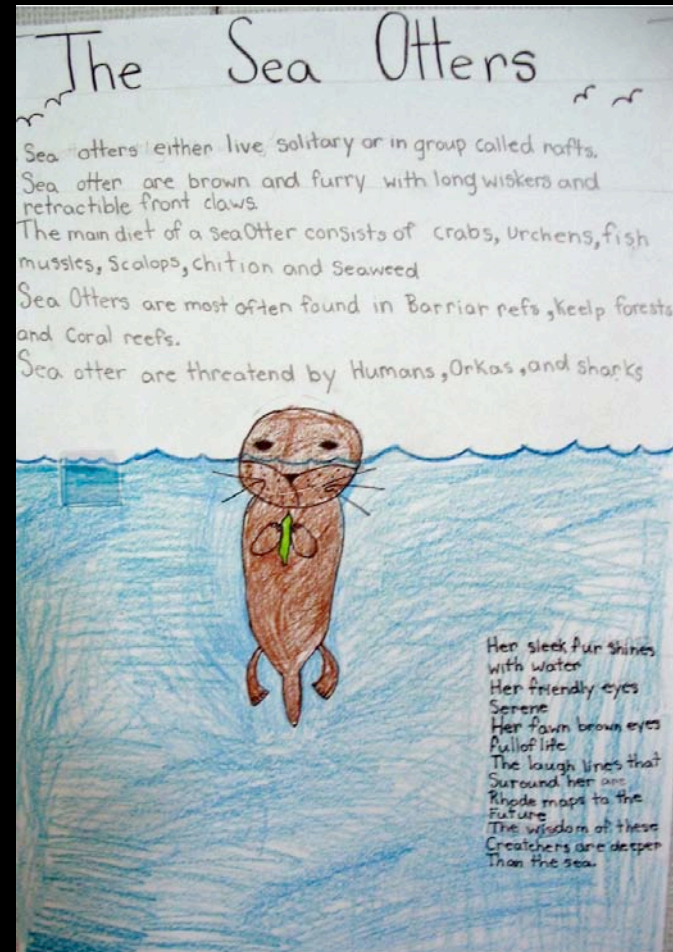 The Sea Otters
Sea otters either live solitary or in group called rafts.
Sea otter are brown and furry with long wiskers and
retractible front claws.
The main diet of a sea Otter consists of crabs, Urchens, fish
mussles, Scalops, chition and Seaweed
Sea Otters are most often found in Barriar refs, Keelp forests
and Coral reefs.
Sea otter are threatend by Humans, Orkas, and sharks
Her sleek fur shines
with water
Her friendly eyes
Serene
Her fawn brown eyes
full of life
The laugh lines that
Suround her are
Rhode maps to the
Future
The wisdom of these
Creatchers are deeper
Than the sea.